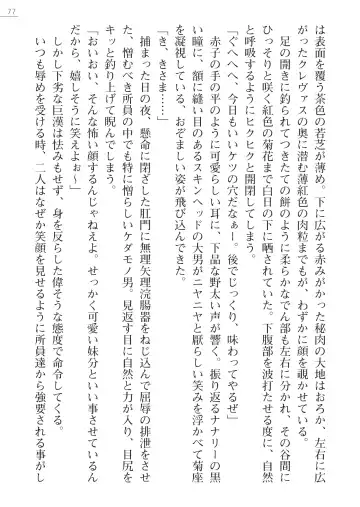 77
は表面を覆う茶色の若芝が薄め。下に広がる赤みがかった秘肉の大地はおろか、左右に広
がったクレヴァスの奥に潜む薄紅色の肉粒までもが、わずかに顔を覗かせている。
足の開きに釣られてつきたての餅のように柔らかなでん部も左右に分かれ、その谷間に
ひっそりと咲く紅色の菊花まで白日の下に晒されていた。下腹部を波打たせる度に、自然
と呼吸するようにヒクヒクと開閉してしまう。
「ぐへへへ、今日もいいケツの穴だなぁー。後でじっくり、味わってやるぜ」
赤子の手の平のように可愛らしい耳に、下品な野太い声が響く。振り返るナナリーの黒
い瞳に、額に縫い目のあるスキンヘッドの大男がニヤニヤと厭らしい笑みを浮かべて菊座
を凝視している、おぞましい姿が飛び込んできた。
「き、きさま……」
捕まった日の夜、懸命に閉ざした肛門に無理矢理浣腸器をねじ込んで屈辱の排泄をさせ
た、憎むべき所員の中でも特に憎らしいケダモノ男。見返す目に自然と力が入り、目尻を
キッと釣り上げて呪んでしまう。
「おいおい、そんな怖い顔するんじゃねえよ。せっかく可愛い妹分といい事させているん
だから、嬉しそうに笑えよなぁ〜」
しかし下劣な巨漢は怯みもせず、身を反らした偉そうな態度で命令してくる。
いつも辱めを受ける時、二人はなぜか笑顔を見せるように所員達から強要される事がし